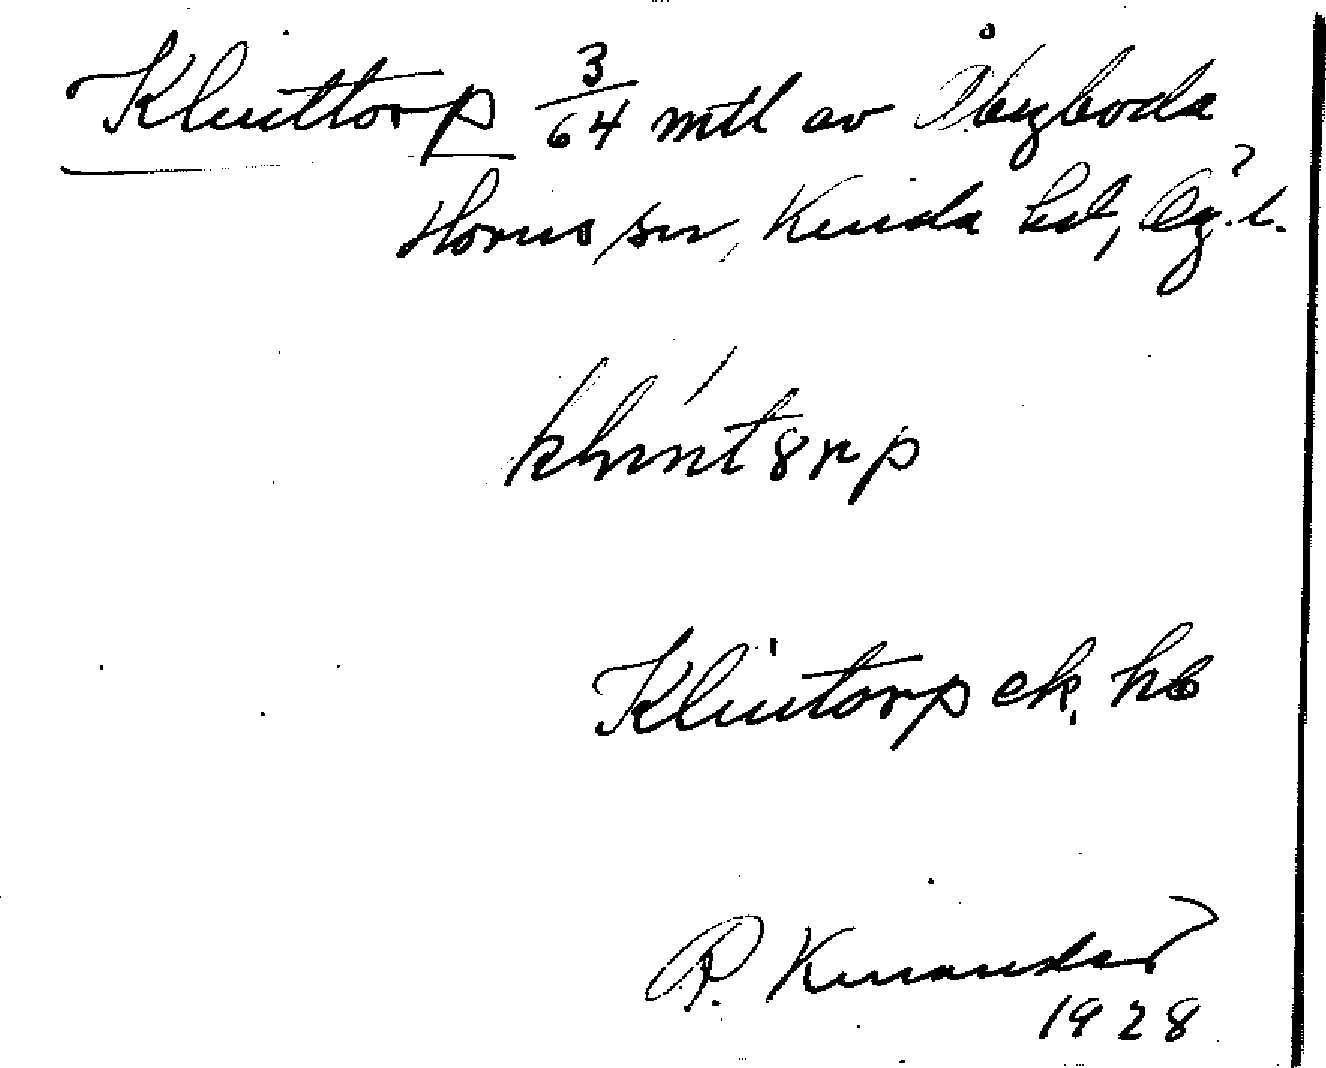 Klinttorp 3/64 mtl av Åbyboda
Horns sn, Kinda hd, Ög. l.
klintorp
Klintorp ek. kb
R. Kinander
1928